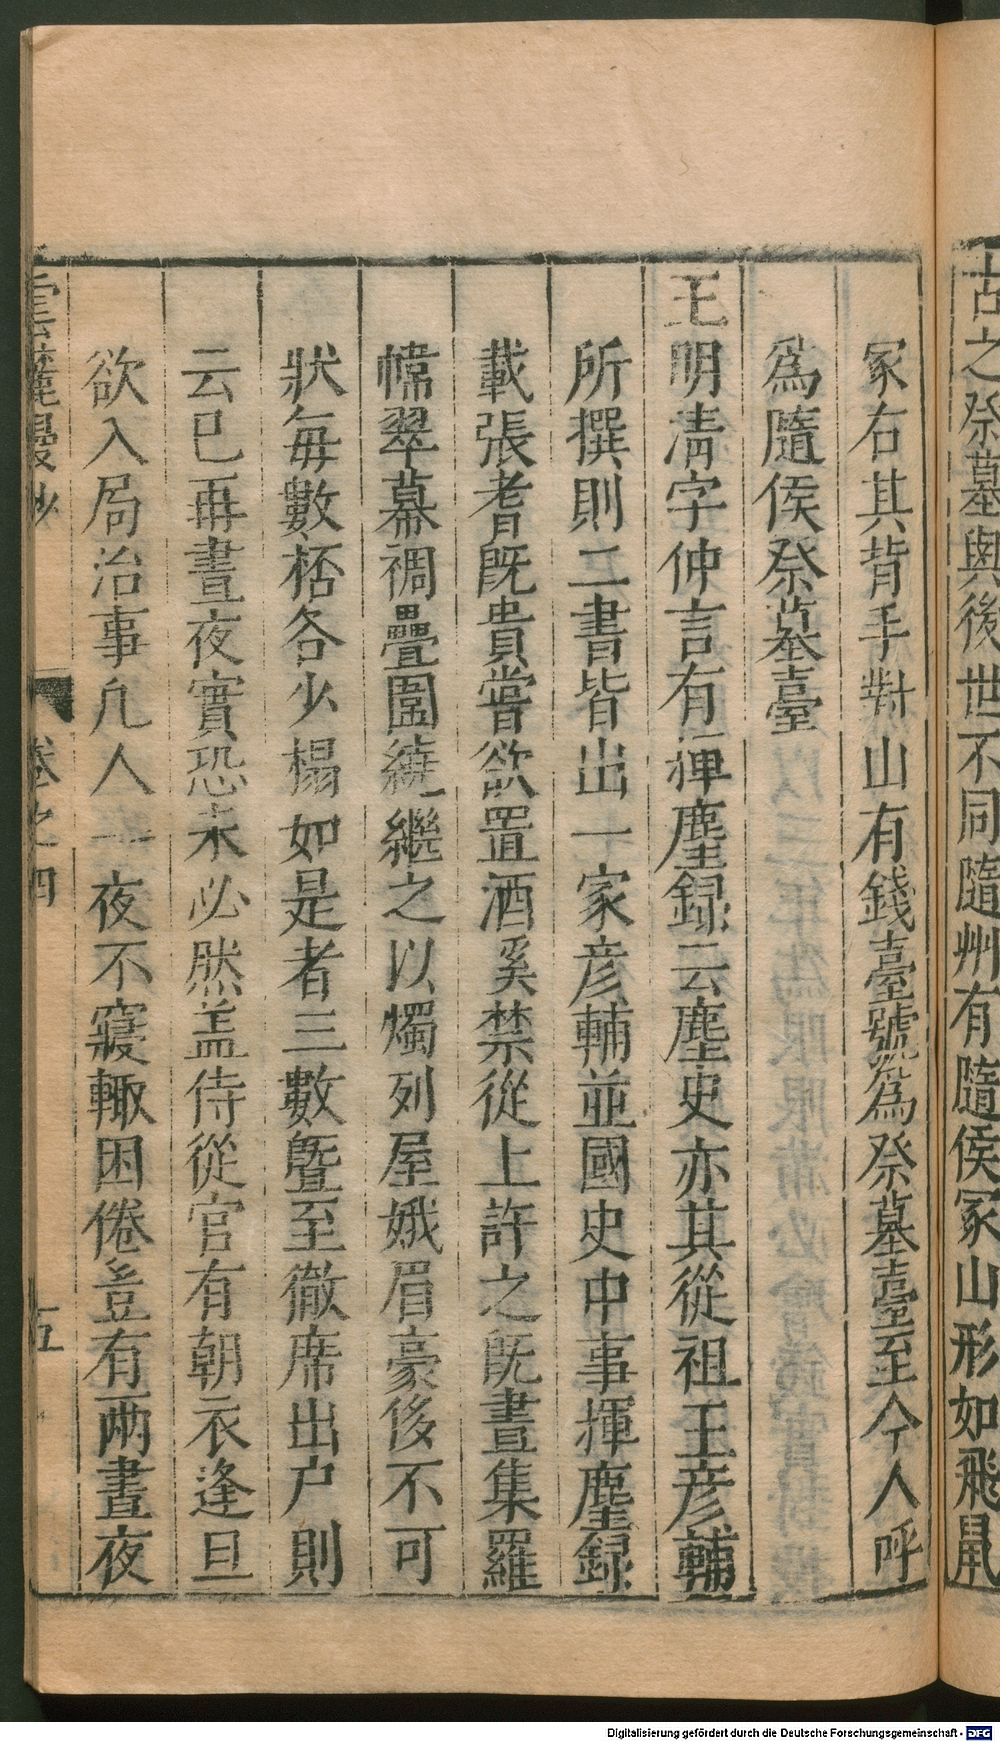 古之祭墓與後世不同隨州有隨侯冢山形如飛鼠
冢右其背手對山有錢臺號爲祭墓臺至今人呼
爲隨侯祭墓臺
王明清字仲言有揮塵録云塵史亦其從祖王彦輔
所撰則二書皆出一家彦輔並國史中事揮塵録
載張耆旣貴嘗欲置酒奚禁從上許之旣晝集羅
幃翠幕禂疊圍繞繼之以燭列屋娥眉豪侈不可
狀毎數桮各少榻如是者三數曁至徹席出户則
云已再晝夜實恐未必然盖侍從官有朝衣逢旦
欲入局治事凢人一夜不寢輙困倦豈有兩晝夜
雲麓漫抄 卷之四 五
Digitalisierung gefördert durch die Deutsche Forschungsgemeinschaft - DFG